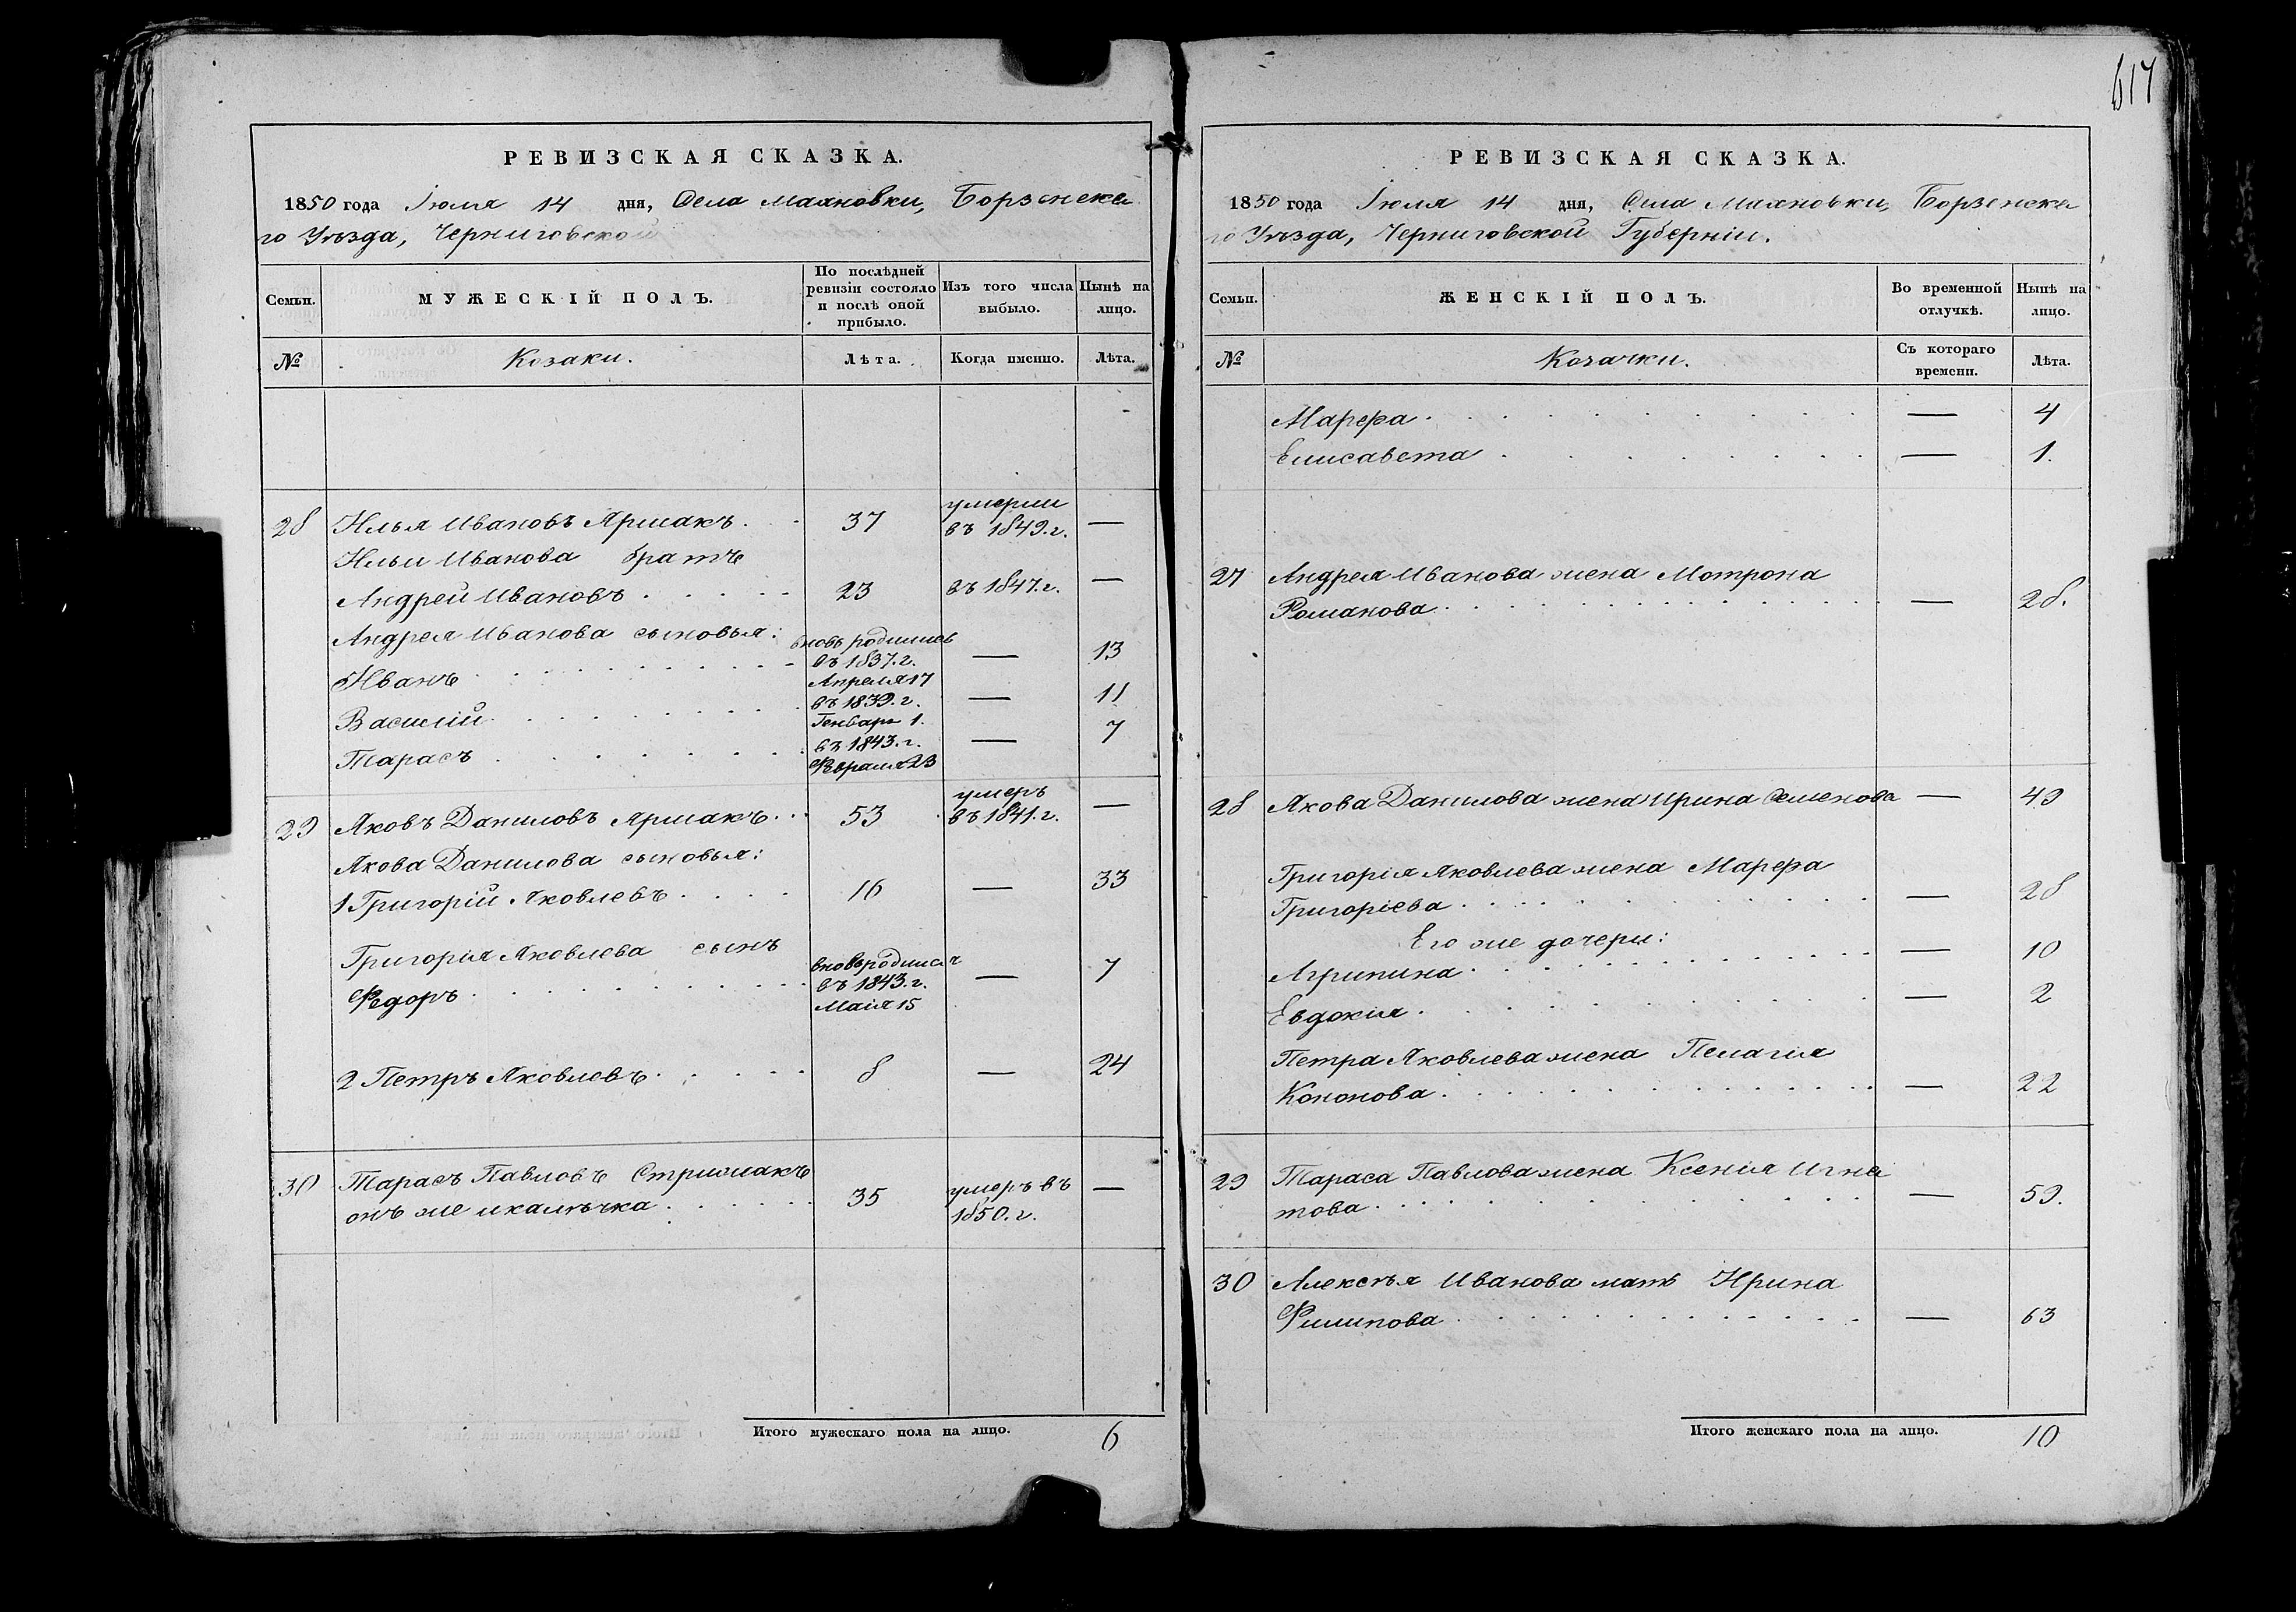 617
РЕВИЗСКАЯ СКАЗКА.
1850 года Іюля 14 дня, Села Маяновки, Борзенска
го Уѣзда, Черниговской
Семьи. МУЖЕСКІЙ ПОЛЪ. По послѣдней ревизіи состояло и послѣ оной прибыло. Изъ того числа выбыло. Нынѣ на лицо.
№ Козаки. Лѣта. Когда именно. Лѣта.
28 Илья Ивановъ Ярмакъ 37 умерли въ 1849.г. —
Ильи Иванова братъ
Андрей Ивановъ 23 въ 1847.г. —
Андрея Иванова сыновья:
Иванъ вновь родился въ 1837.г. Апреля 17 — 13
Василій въ 1839.г. Генваря 1. — 11
Тарасъ въ 1843.г. Февраля 23 — 7
29 Яковъ Даниловъ Ярмакъ 53 умеръ въ 1841.г. —
Якова Данилова сыновья:
1 Григорій Яковлевъ 16 — 33
Григорія Яковлева сынъ
Федоръ вновь родился въ 1843.г. Маія 15 — 7
2 Петръ Яковлевъ 8 — 24
30 Тарасъ Павловъ Стрижакъ
онъ же 35 умеръ въ 1850.г. —
Итого мужескаго пола на лицо. 6
РЕВИЗСКАЯ СКАЗКА.
1850 года Іюля 14 дня, Села Маяновки, Борзенска
го Уѣзда, Черниговской Губерніи.
Семьи. ЖЕНСКІЙ ПОЛЪ. Во временной отлучкѣ. Нынѣ на лицо.
№ Козачки. Съ котораго времени. Лѣта.
Марфа — 4
Елисавета — 1.
27 Андрея Иванова жена Мотрона
Романова — 28.
28 Якова Данилова жена Ирина Семенова — 49
Григорія Яковлева жена Марфа
Григоріева — 28
Его же дочери:
Агрипина — 10
Евдокія — 2
Петра Яковлева жена Пелагія
Кононова — 22
29 Тараса Павлова жена Ксенія Игна
това — 59.
30 Алексѣя Иванова мать Ирина
Филипова — 63
Итого женскаго пола на лицо. 10